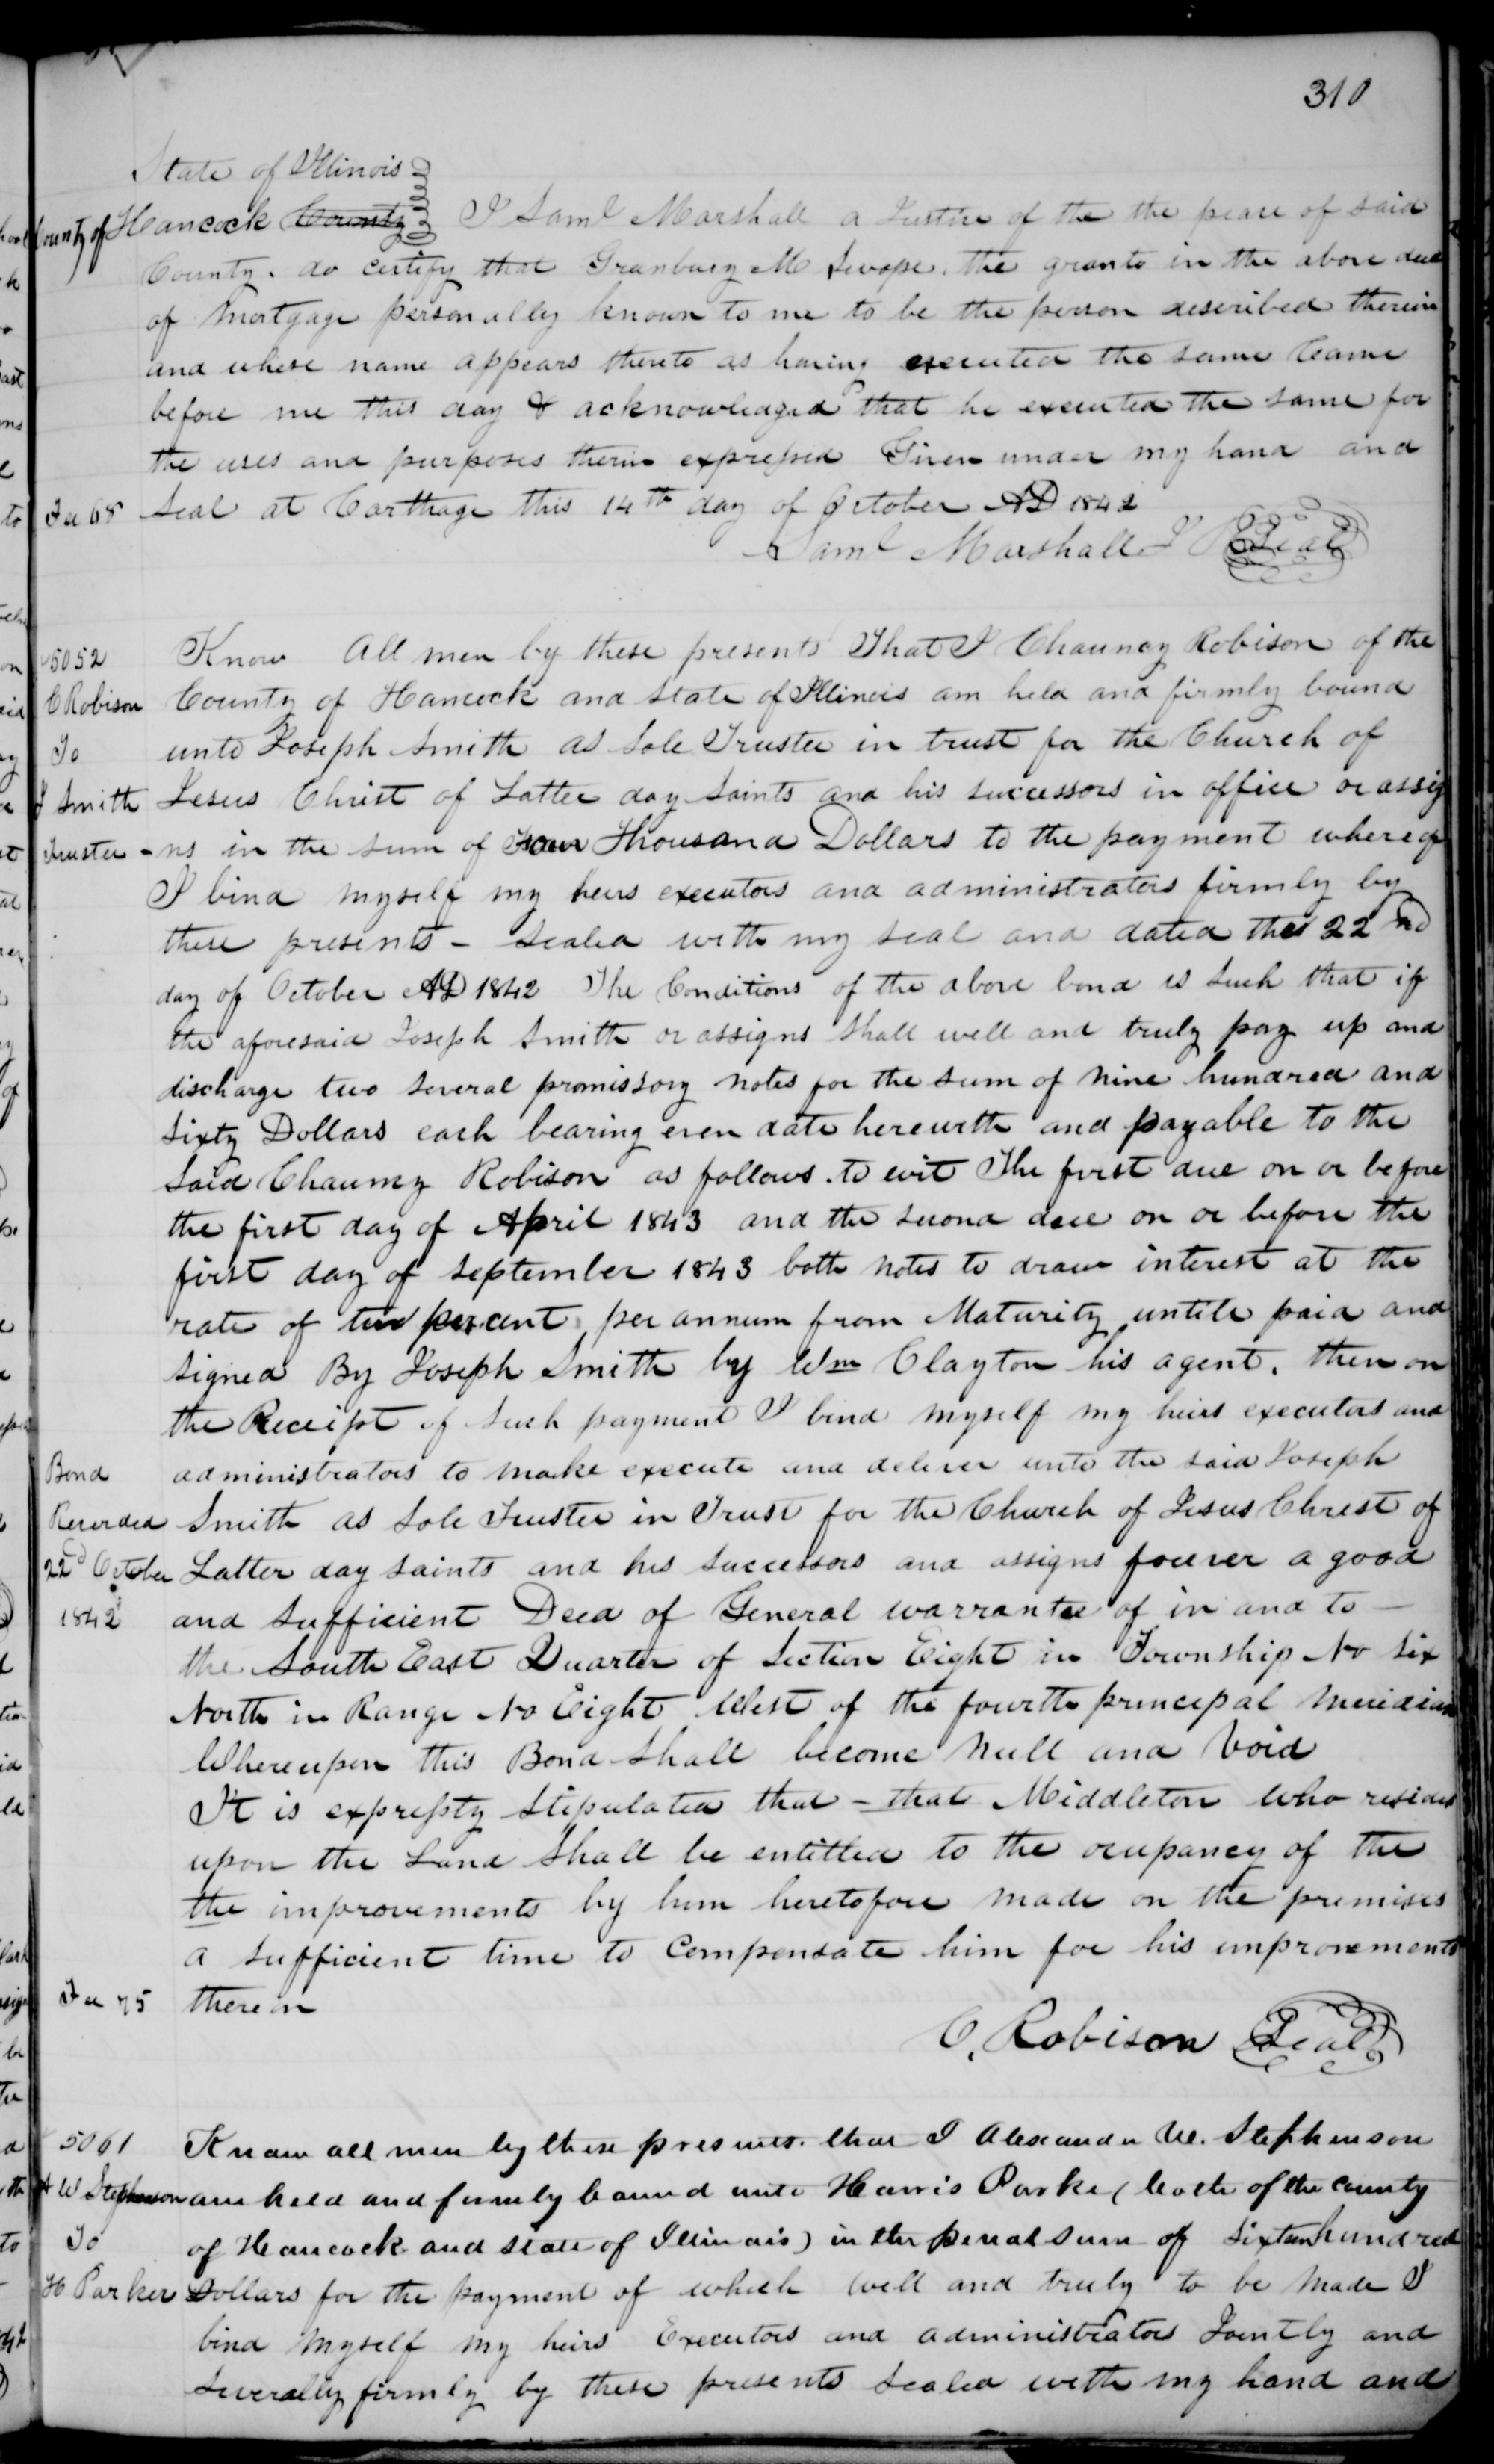 310
State of Illinois
County of Hancock County I Saml Marshall a Justice of the the peace of said
County. do certify that Granbury M Swope. the grantor in the above deed
of Mortgage personally known to me to be the person described therein
and whose name appears thereto as having executed the same Came
before me this day & acknowledged that he executed the same for
the uses and purposes therin expressed Given under my hand and
Fee 68 Seal at Carthage this 14th day of October AD 1842
Saml Marshall J P Seal
5052 Know All men by these presents That I Chauncy Robison of the
C Robison County of Hancock and State of Illinois am held and firmly bound
To unto Joseph Smith as Sole Trustee in trust for the Church of
J Smith Jesus Christ of Latter day Saints and his successors in office or assig
Trustee -ns in the sum of Four Thousand Dollars to the payment whereof
I bind myself my heirs executors and administrators firmly by
these presents - Sealed with my seal and dated this 22nd
day of October AD 1842 The Conditions of the above bond is Such that if
the aforesaid Joseph Smith or assigns Shall well and truly pay up and
discharge two several promissory notes for the sum of nine hundred and
sixty Dollars each bearing even date herewith and payable to the
Said Chauncy Robison as follows. to wit The first due on or before
the first day of April 1843 and the second due on or before the
first day of September 1843 both notes to draw interest at the
rate of percent per annum from Maturity untill paid and
signed By Joseph Smith by Wm Clayton his agent. then on
the Receipt of Such payment I bind myself my heirs executors and
Bond administrators to make execute and deliver unto the said Joseph
Recorded Smith as Sole Trustee in Trust for the Church of Jesus Christ of
22d October Latter day saints and his successors and assigns forever a good
1842 and Sufficient Deed of General warrantee of in and to
the South East Quarter of Section Eight in Township No Six
North in Range No Eight West of the fourth principal Meridian
Whereupon this Bond Shall become Null and Void
It is expressly Stipulated that - that Middleton who resides
upon the Land Shall be entitled to the ocupancy of the
the improvements by him heretofore made on the premises
a sufficient time to Compensate him for his improvements
Fee 75 thereon
C. Robison Seal
5061 Know all men by these presents. that I Alexander W. Stephenson
A W Stephenson am held and firmly bound unto Harris Parker (both of the county
To of Hancock and state of Illinois) in the penal sum of Sixteen hundred
H Parker Dollars for the payment of which well and truly to be Made I
bind Myself my heirs Executors and administrators Jointly and
Severally firmly by these presents Sealed with my hand and